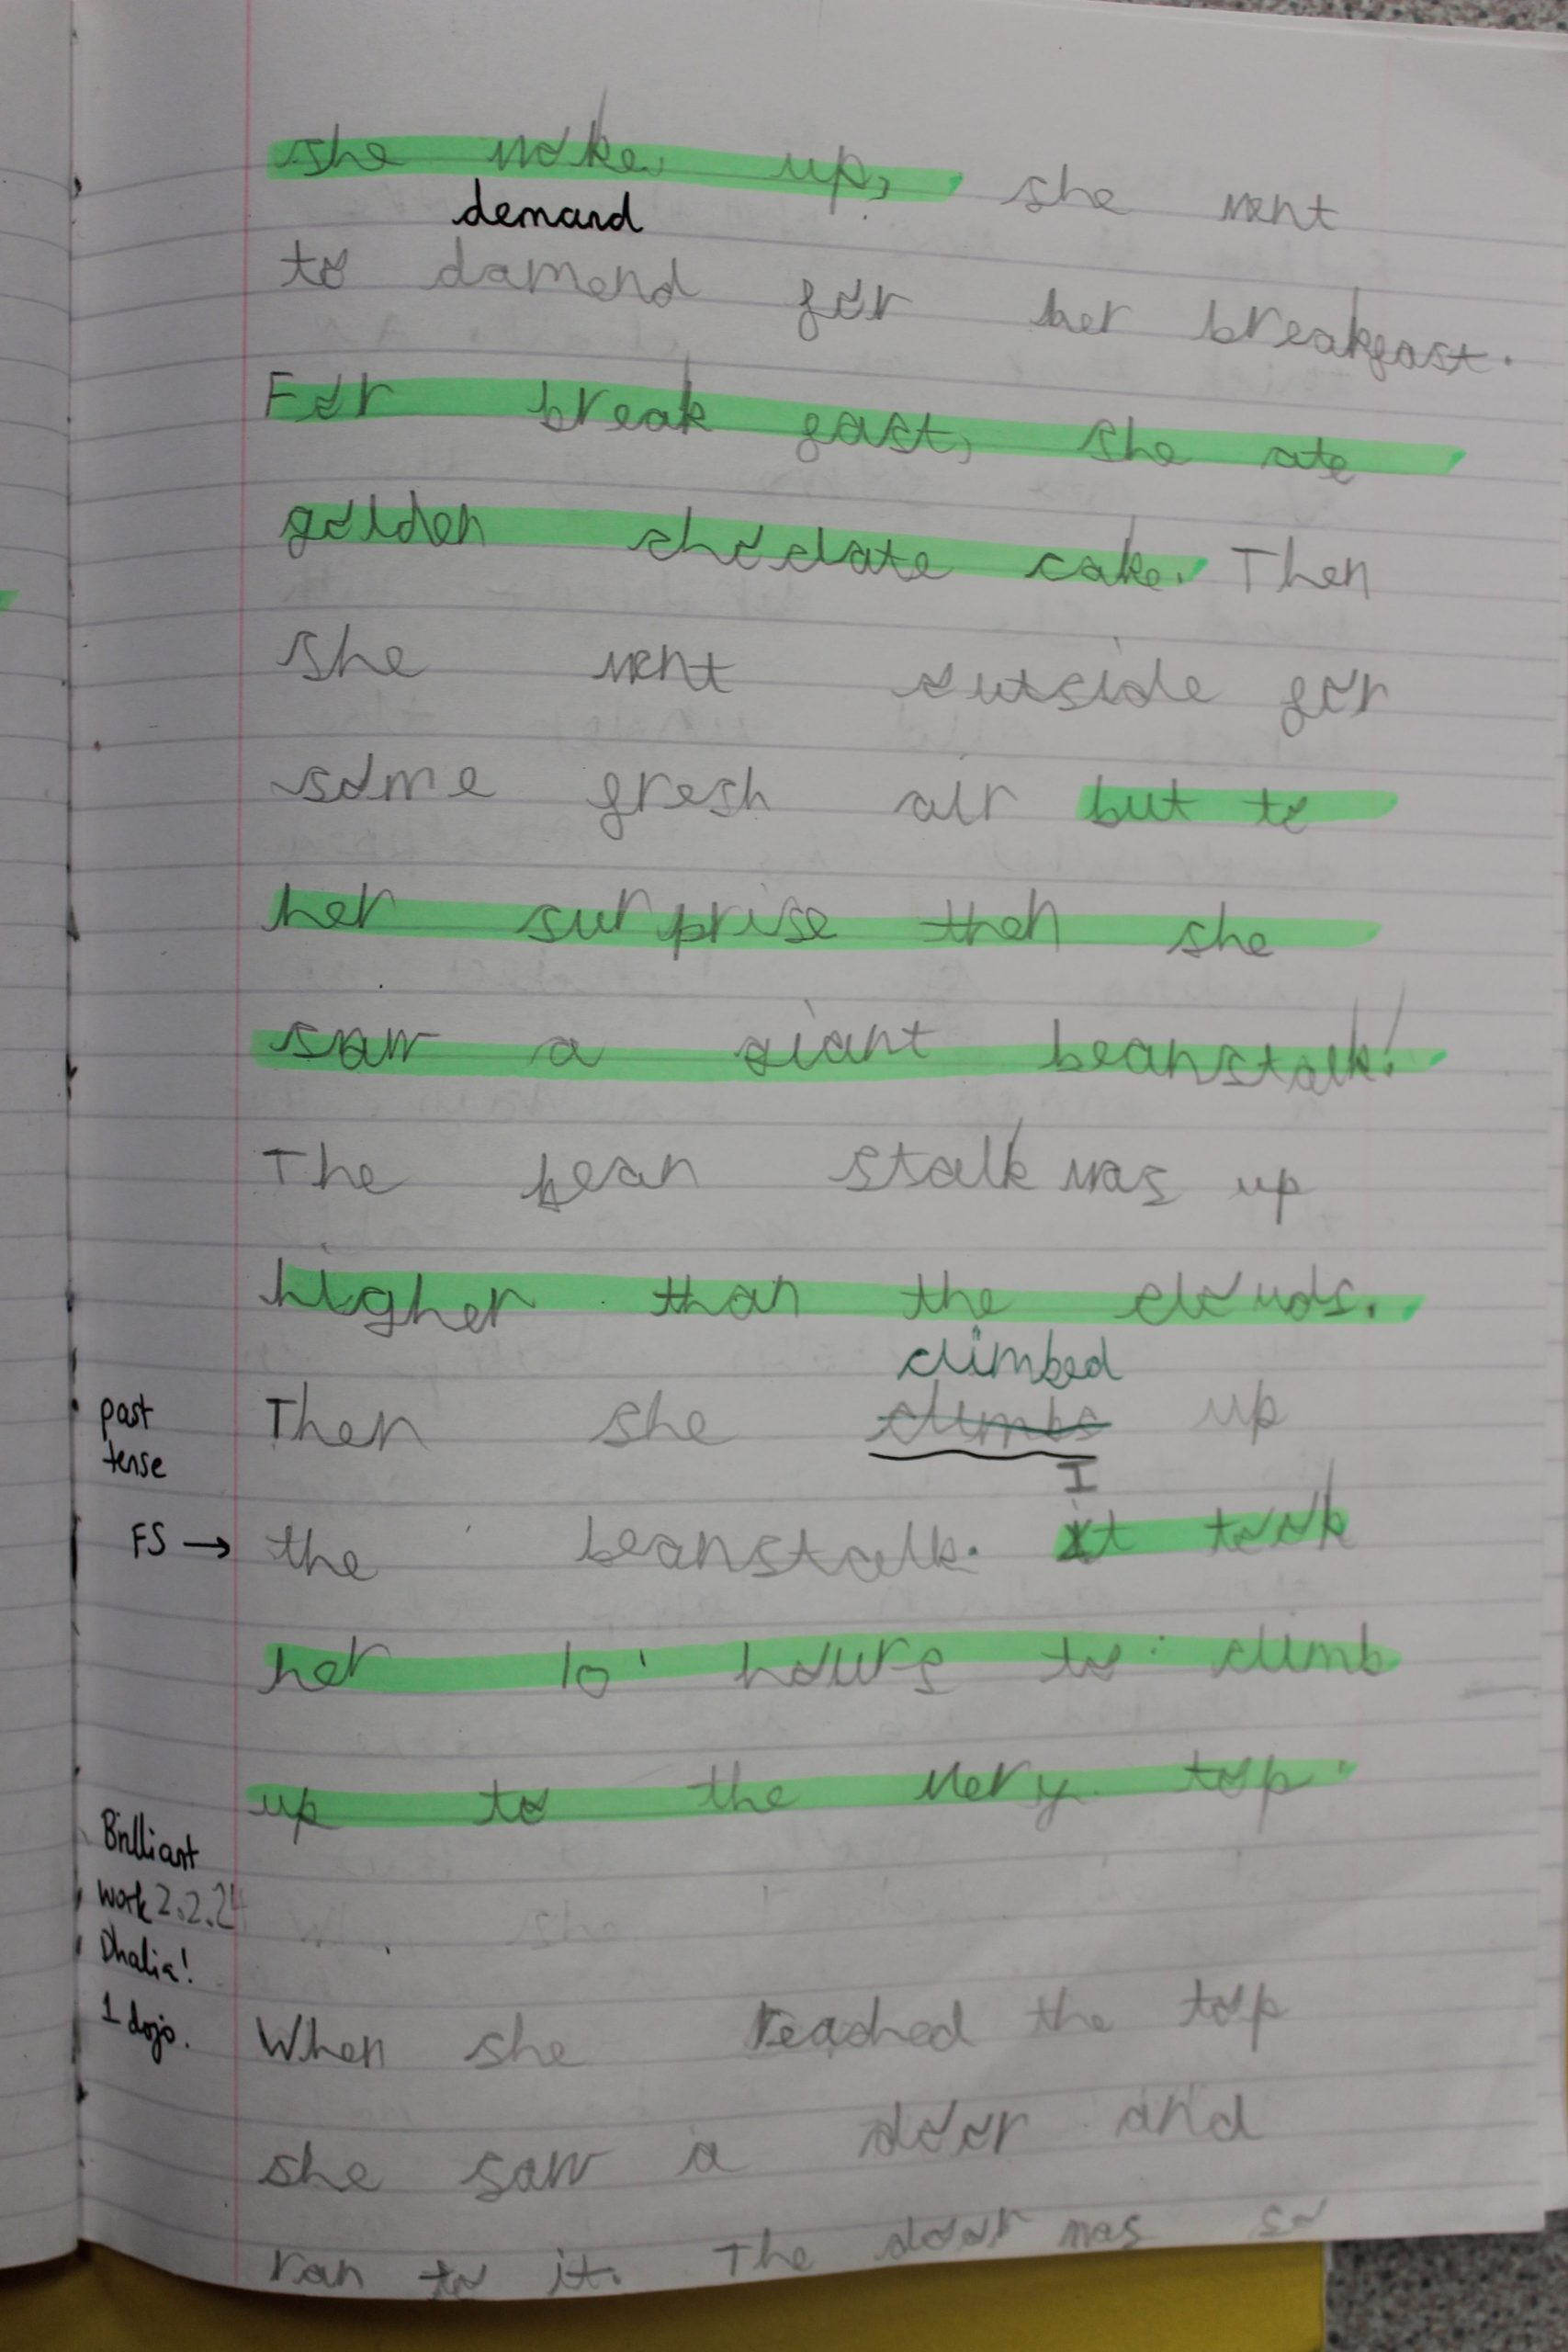 she woke up, she went
demand
to damend for her breakfast.
For break fast, she ate
golden choclate cake. Then
she went outside for
some fresh air but to
her surprise then she
saw a giant beanstalk!
The bean stalk was up
higher than the clouds.
climbed
past
tense
Then she climbs up
I
FS → the beanstalk. it took
her 10 hours to climb
up to the very top.
Brilliant
work 2.2.24
Dhalia!
1 dojo.
When she reached the top
she saw a door and
ran to it. The door was so